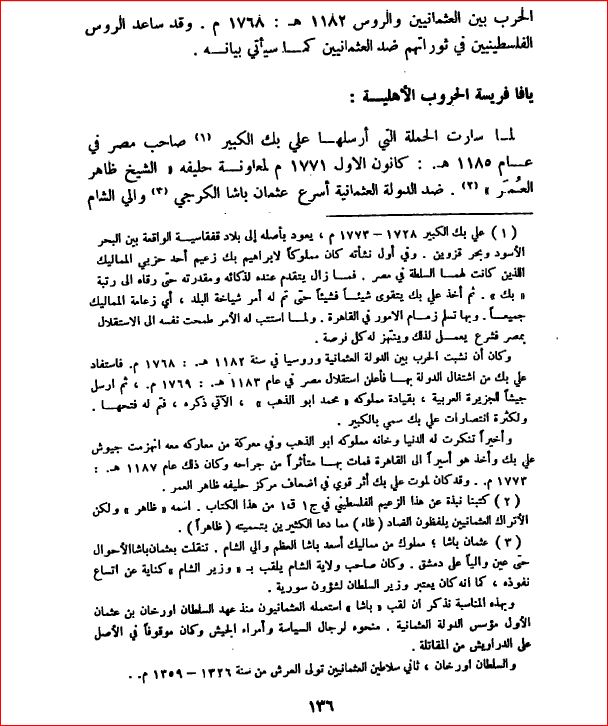 الحرب بين العثمانيين والروس ١١٨٢ هـ : ١٧٦٨ م . وقد ساعد الروس
الفلسطينيين في ثوراتهم ضد العثمانيين كمـا سيأتي بيانـه .
يافا فريسة الحروب الأهليـة :
لمـا سارت الحملة التي أرسلهـا علي بك الكبير (١) صاحب مصر في
عـام ١١٨٥ هـ. : كانون الاول ١٧٧١ م لمعاونـة حليفه « الشيخ ظاهر
العُمَر » (٢) . ضد الدولة العثمانية أسرع عثمان باشا الكرجي (٣) والي الشام
( ١ ) علي بك الكبير ١٧٢٨ – ١٧٧٣ م ، يعود بأصله إلى بلاد قفقاسيـة الواقعة بين البحر
الأسود وبحر قزوين . وفي أول نشأته كان مملوكاً لابراهيم بك زعيم أحد حزبي المماليك
اللذين كانت لهمـا السلطة في مصر . فمـا زال يتقدم عنده لذكائه ومقدرته حتى رقاه الى رتبة
« بك » . ثم أخذ علي بك يتقوى شيئـاً فشيئاً حتى تم له أمر شياخة البلد ، أي زعامة المماليك
جميعـاً . وبها تسلم زمـام الامور في القاهرة . ولمـا استتب له الأمر طمحت نفسه الى الاستقلال
بمصر فشرع يعمـل لذلك وينتهز له كل فرصة .
وكان أن نشبت الحرب بين الدولة العثمانية وروسيا في سنة ١١٨٢ هـ. : ١٧٦٨ م. فاستفاد
علي بك من اشتغال الدولة بهـا فأعلن استقلال مصر في عام ١١٨٣ هـ. : ١٧٦٩ م. ، ثم ارسل
جيشاً للجزيرة العربية ، بقيادة مملوكه « محمد ابو الذهب » ، الآتي ذكره ، فتم له فتحهـا .
ولكثرة انتصارات علي بك سمي بالكبير .
وأخيراً تنكرت له الدنيا وخانه مملوكه ابو الذهب وفي معركة من معاركه معه انهزمت جيوش
علي بك وأخذ هو أسيراً الى القاهرة فمات بهـا متأثراً من جراحه وكان ذلك عام ١١٨٧ هـ. :
١٧٧٣ م. . وقد كان لموت علي بك أثر قوي في اضعاف مركز حليفه ظاهر العمر .
( ٢ ) كتبنا نبذة عن هذا الزعيم الفلسطيني في ج١ ق١ من هذا الكتاب . اسمه « ظاهر » ولكن
الأتراك العثمانيين يلفظون الضاد ( ظاء ) مما دعا الكثيرين بتسميته ( ظاهراً ) .
( ٣ ) عثمان باشا ؛ مملوك من مماليك أسعد باشا العظم والي الشام . تنقلت بعثمان باشا الأحوال
حتى عين والياً على دمشق . وكان صاحب ولاية الشام يلقب بـ « وزير الشام » كناية عن اتساع
نفوذه ، كما انه كان يعتبر وزير السلطان لشؤون سورية .
وبهذه المناسبة نذكر ان لقب « باشا » استعمله العثمانيون منذ عهد السلطان اورخان بن عثمان
الأول مؤسس الدولة العثمانية . منحوه لرجال السياسة وأمراء الجيش وكان موقوفاً في الأصل
على الدراويش من المقاتلة .
والسلطان اورخان ، ثاني سلاطين العثمانيين تولى العرش من سنة ١٣٢٦ – ١٣٥٩ م. .
١٣٦